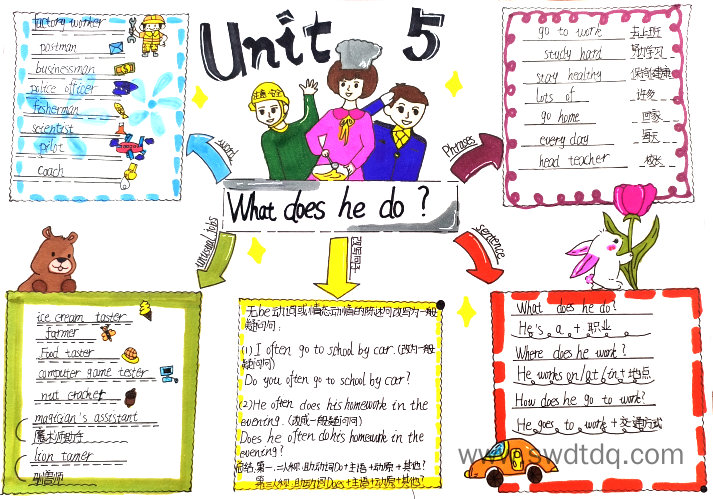 Unit 5
What does he do?
word
factory worker
postman
businessman
police officer
fisherman
scientist
pilot
coach
Phrases
go to work 去上班
study hard 努力学习
stay healthy 保持健康
lots of 许多
go home 回家
every day 每天
head teacher 校长
unusual jobs
ice cream taster
farmer
Food taster
computer game tester
nut cracker
magician's assistant
魔术师助手
lion tamer
驯兽师
改写句子
无be动词或情态动词的陈述句改写为一般
疑问句:
(1) I often go to school by car. (改为一般
疑问句)
Do you often go to school by car?
(2) He often does his homework in the
evening. (改成一般疑问句)
Does he often do his homework in the
evening?
总结: 第一、二人称: 助动词Do+主语+动原+其他?
第三人称: 助动词Does+主语+动原+其他?
sentence
What does he do?
He's a + 职业
Where does he work?
He works on/at/in+地点
How does he go to work?
He goes to work + 交通方式
www.swdtdq.com